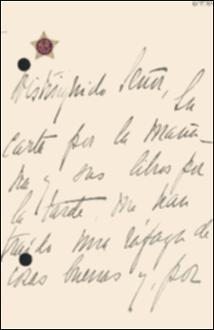 Distinguido Señor, Su
carta por la maña-
na y sus libros por
la tarde me han
traido una ráfaga de
cosas buenas y, por